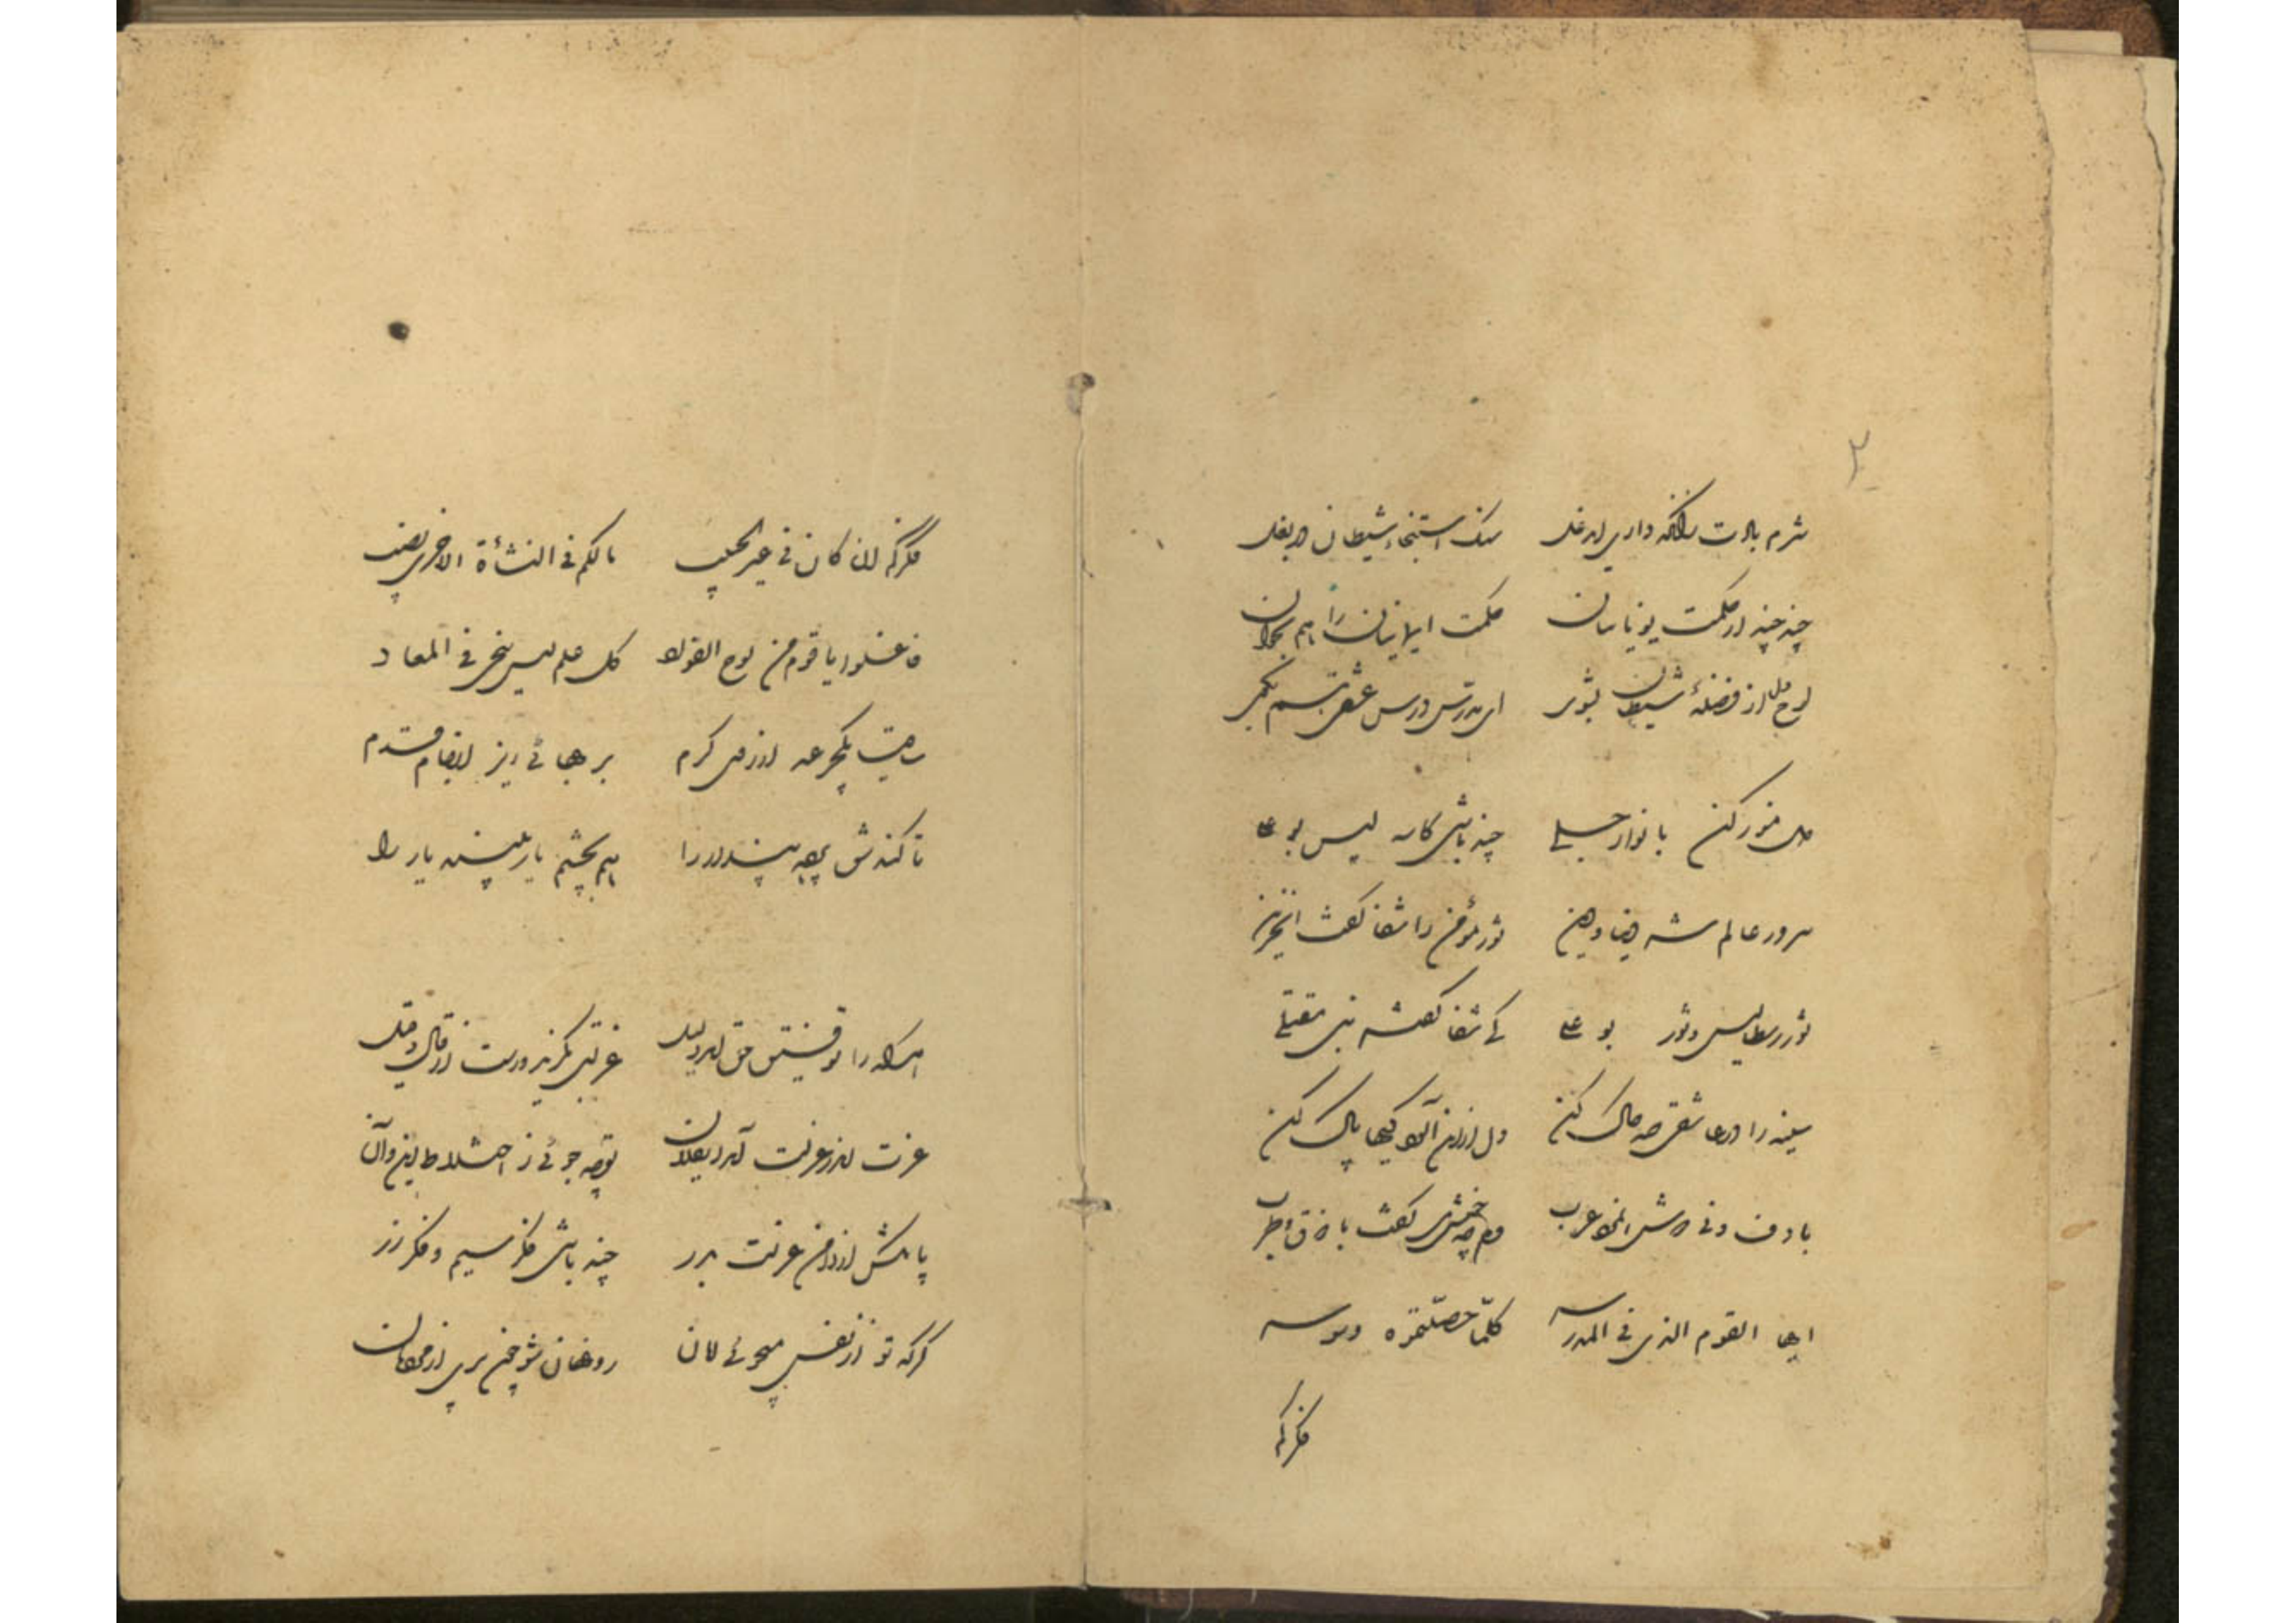 ۲
شرم بادت زانکه داری ای دغل سنگ استنجای شیطان در بغل
چند چند از حکمت یونانیان حکمت ایمانیان را هم بخوان
لوح دل از فضلهٔ شیطان بشوی ای مدرس درس عشقی هم بگوی
دل منور کن بانوار جلی چند باشی کاسه لیس بو علی
سرور عالم شه دنیا و دین سؤر مؤمن را شفا گفت ای حزین
سؤر رسطالیس و سؤر بو علی کی شفا گفته نبی مقبلی
سینه را در عاشقی صد چاک کن دل از این آلودگیها پاک کن
با دف و نی دوش آن مرد عرب وه چه خوش می گفت با ذوق و طرب
ایها القوم الذی فی المدرسه کلّما حصّلتموه وسوسه
فکرکم
فکرکم ان کان فی غیر الحبیب مالکم فی النشأة الاخری نصیب
فاغسلوا یا قوم من لوح الفؤاد کل علم لیس ینجی فی المعاد
ساقیا یکجرعه از روی کرم بر بهائی ریز از جام قدم
تا کند شق پرده پندار را هم بچشم یار بیند یار را
هر که را توفیق حق آمد دلیل عزلتی بگزید و رست از قال و قیل
عزت اندر عزلت آمد ای فلان تو چه جوئی ز اختلاط این و آن
پا مکش از دامن عزلت بدر چند باشی فکر سیم و فکر زر
گر که تو از نفس میجوئی امان رو نهان شو چون پری از مردمان